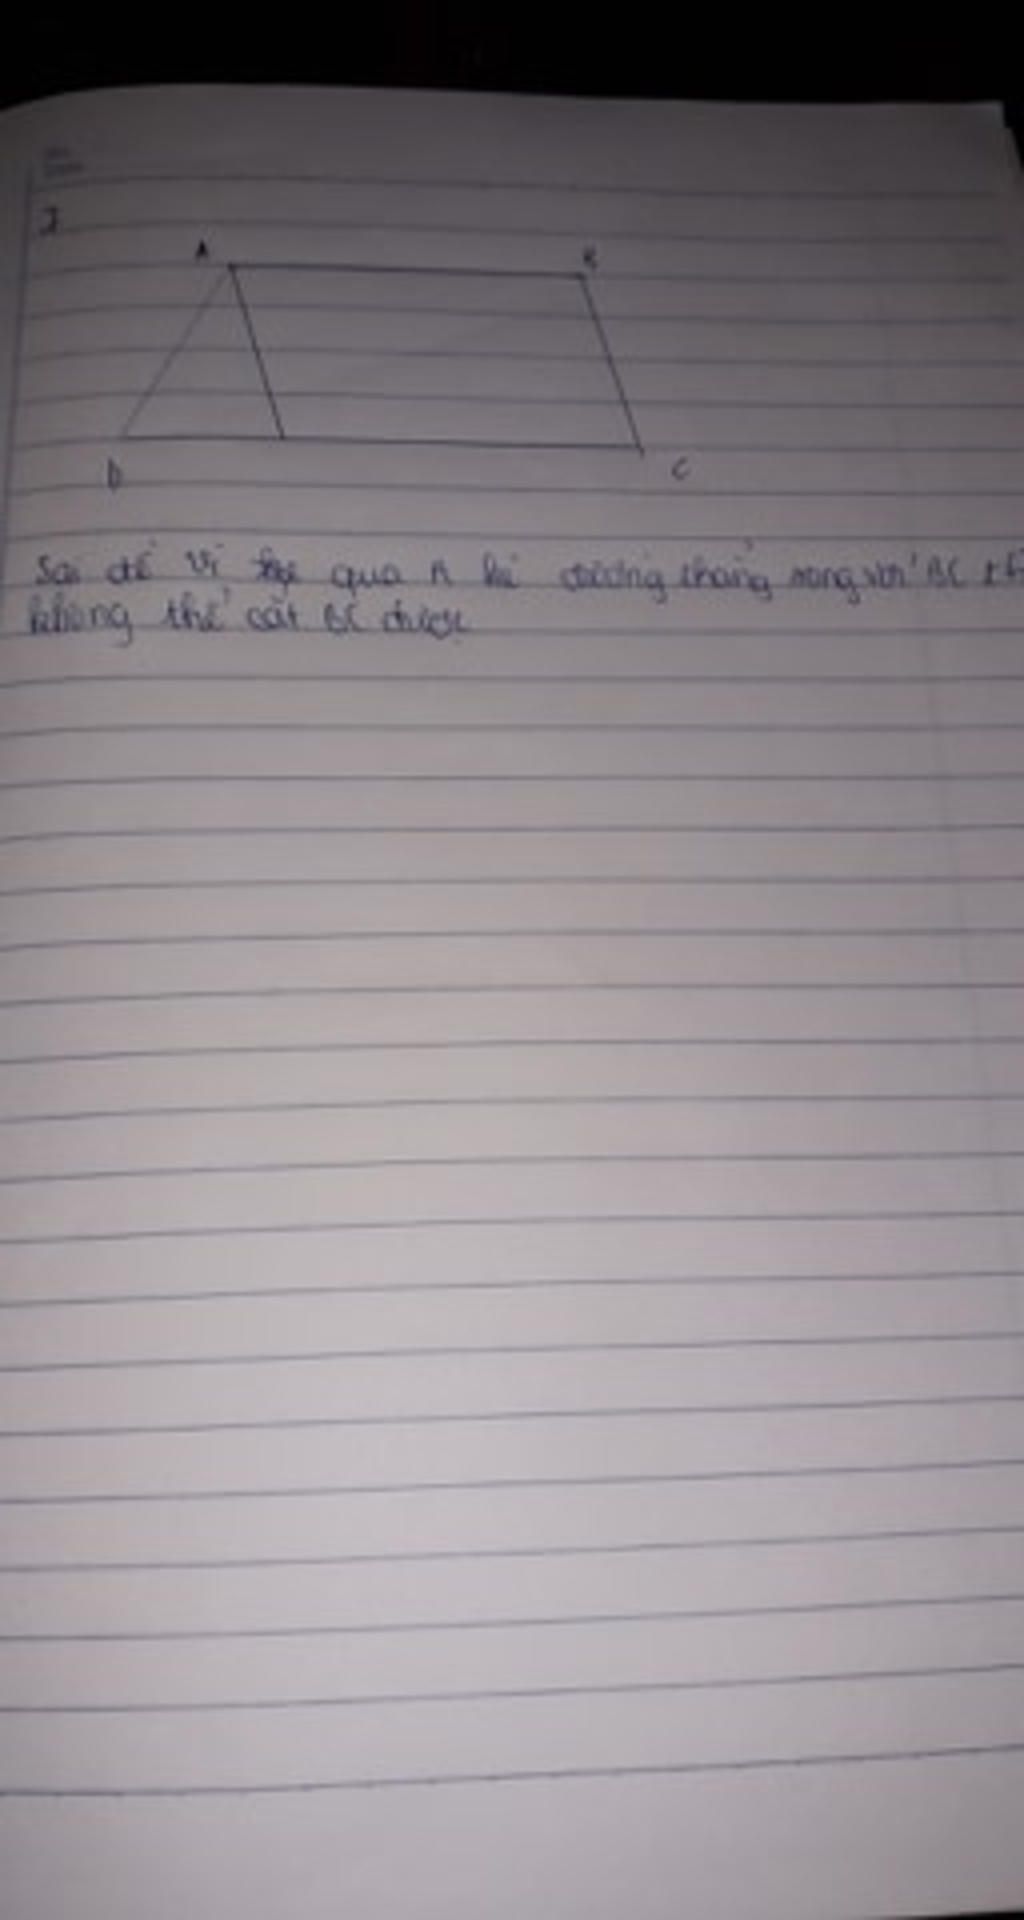 A
B
D
C
Sai đề vì qua A kẻ đường thẳng song với BC th
không thể cắt BC được